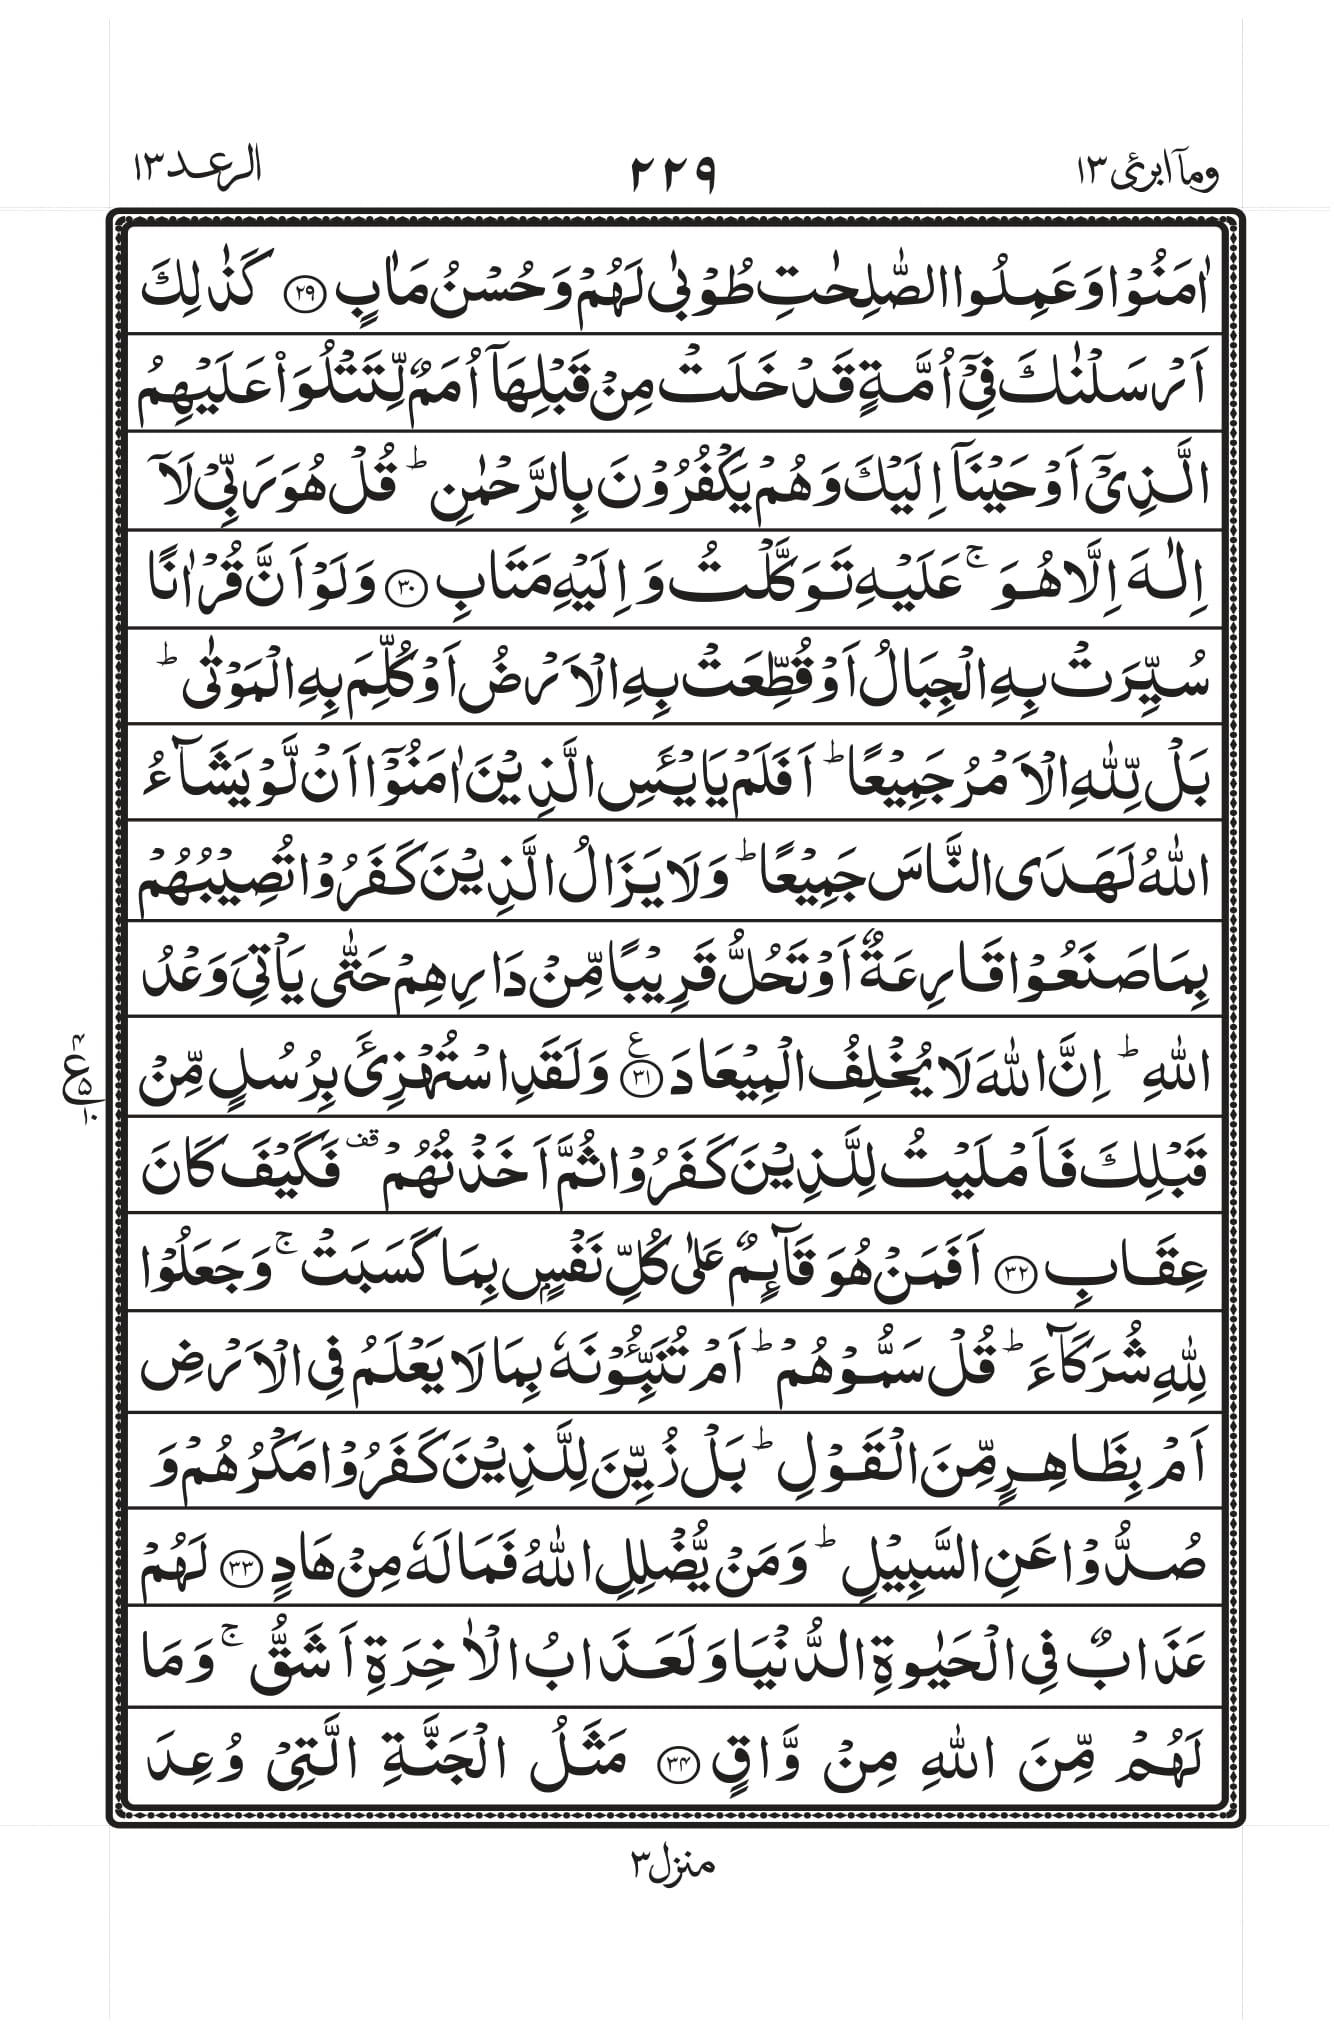 ومآ ابرئ ١٣
٢٢٩
الرعد ١٣
اٰمَنُوۡا وَعَمِلُوا الصّٰلِحٰتِ طُوۡبٰى لَهُمۡ وَحُسۡنُ مَاٰبٍ ﴿۲۹﴾ كَذٰلِكَ
اَرۡسَلۡنٰكَ فِىۡۤ اُمَّةٍ قَدۡ خَلَتۡ مِنۡ قَبۡلِهَاۤ اُمَمٌ لِّتَتۡلُوَا۟ عَلَيۡهِمُ
الَّذِىۡۤ اَوۡحَيۡنَاۤ اِلَيۡكَ وَهُمۡ يَكۡفُرُوۡنَ بِالرَّحۡمٰنِ‌ؕ قُلۡ هُوَ رَبِّىۡ لَاۤ
اِلٰهَ اِلَّا هُوَ‌ۚ عَلَيۡهِ تَوَكَّلۡتُ وَاِلَيۡهِ مَتَابِ ﴿۳۰﴾ وَلَوۡ اَنَّ قُرۡاٰنًا
سُيِّرَتۡ بِهِ الۡجِبَالُ اَوۡ قُطِّعَتۡ بِهِ الۡاَرۡضُ اَوۡ كُلِّمَ بِهِ الۡمَوۡتٰى‌ؕ
بَلۡ لِّلّٰهِ الۡاَمۡرُ جَمِيۡعًا‌ؕ اَفَلَمۡ يَايۡــَٔسِ الَّذِيۡنَ اٰمَنُوۡۤا اَنۡ لَّوۡ يَشَآءُ
اللّٰهُ لَهَدَى النَّاسَ جَمِيۡعًا‌ؕ وَلَا يَزَالُ الَّذِيۡنَ كَفَرُوۡا تُصِيۡبُهُمۡ
بِمَا صَنَعُوۡا قَارِعَةٌ اَوۡ تَحُلُّ قَرِيۡبًا مِّنۡ دَارِهِمۡ حَتّٰى يَاۡتِىَ وَعۡدُ
اللّٰهِ‌ؕ اِنَّ اللّٰهَ لَا يُخۡلِفُ الۡمِيۡعَادَ ﴿۳۱﴾ ع وَلَقَدِ اسۡتُهۡزِئَ بِرُسُلٍ مِّنۡ
۴ ع ۵ ۱۰
قَبۡلِكَ فَاَمۡلَيۡتُ لِلَّذِيۡنَ كَفَرُوۡا ثُمَّ اَخَذۡتُهُمۡ قف فَكَيۡفَ كَانَ
عِقَابِ ﴿۳۲﴾ اَفَمَنۡ هُوَ قَآٮِٕمٌ عَلٰى كُلِّ نَفۡسٍۢ بِمَا كَسَبَتۡ‌ۚ وَجَعَلُوۡا
لِلّٰهِ شُرَكَآءَ‌ؕ قُلۡ سَمُّوۡهُمۡ‌ؕ اَمۡ تُنَـبِّـــُٔوۡنَهٗ بِمَا لَا يَعۡلَمُ فِى الۡاَرۡضِ
اَمۡ بِظَاهِرٍ مِّنَ الۡقَوۡلِ‌ؕ بَلۡ زُيِّنَ لِلَّذِيۡنَ كَفَرُوۡا مَكۡرُهُمۡ وَ
صُدُّوۡا عَنِ السَّبِيۡلِ‌ؕ وَمَنۡ يُّضۡلِلِ اللّٰهُ فَمَا لَهٗ مِنۡ هَادٍ ﴿۳۳﴾ لَهُمۡ
عَذَابٌ فِى الۡحَيٰوةِ الدُّنۡيَا وَلَعَذَابُ الۡاٰخِرَةِ اَشَقُّ‌ۚ وَمَا
لَهُمۡ مِّنَ اللّٰهِ مِنۡ وَّاقٍ ﴿۳۴﴾ مَثَلُ الۡجَنَّةِ الَّتِىۡ وُعِدَ
منزل ٣